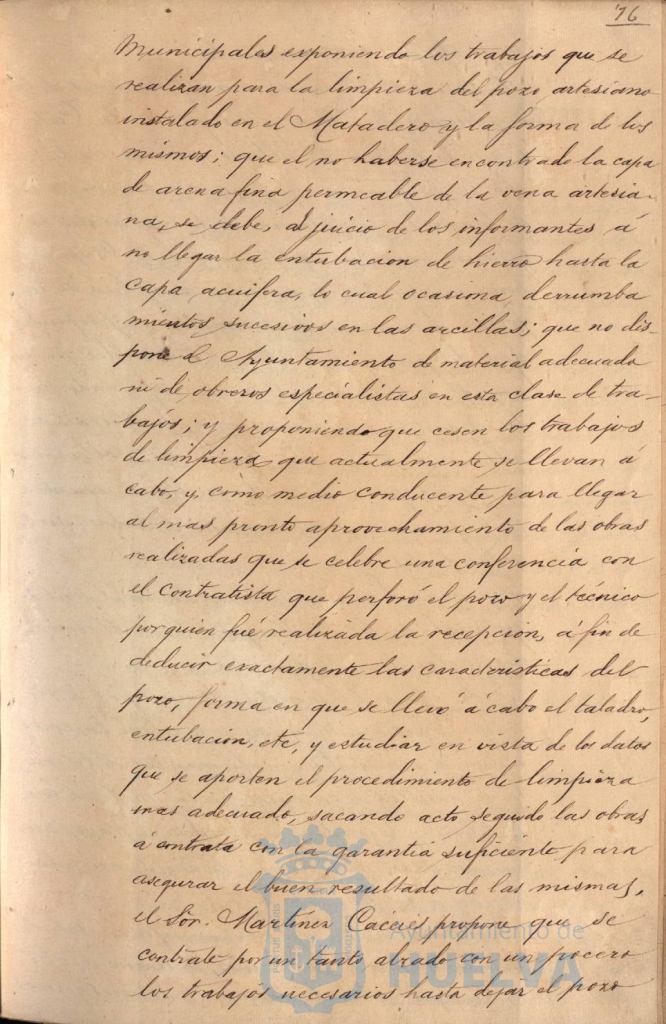 76
Municipales exponiendo los trabajos que se
realizan para la limpieza del pozo artesiano
instalado en el Matadero y la forma de los
mismos; que el no haberse encontrado la capa
de arena fina permeable de la vena artesia-
na, se debe, al juicio de los informantes á
no llegar la entubacion de hierro hasta la
capa acuifera, lo cual ocasiona derrumba
mientos sucesivos en las arcillas; que no dis-
pone el Ayuntamiento de material adecuado
ni de obreros especialistas en esta clase de tra-
bajos; y proponiendo que cesen los trabajos
de limpieza que actualmente se llevan á
cabo, y, como medio conducente para llegar
al mas pronto aprovechamiento de las obras
realizadas que se celebre una conferencia con
el contratista que perforó el pozo y el técnico
por quien fué realizada la recepción, á fin de
deducir exactamente las caracteristicas del
pozo, forma en que se llevó á cabo el taladro,
entubacion, etc, y estudiar en vista de los datos
que se aporten el procedimiento de limpieza
mas adecuado, sacando acto seguido las obras
á contrata con la garantia suficiente para
asegurar el buen resultado de las mismas,
el Sór. Martinez Cáceres propone que se
contrate por un tanto alzado con un pocero
los trabajos necesarios hasta dejar el pozo
Ayuntamiento de
HUELVA